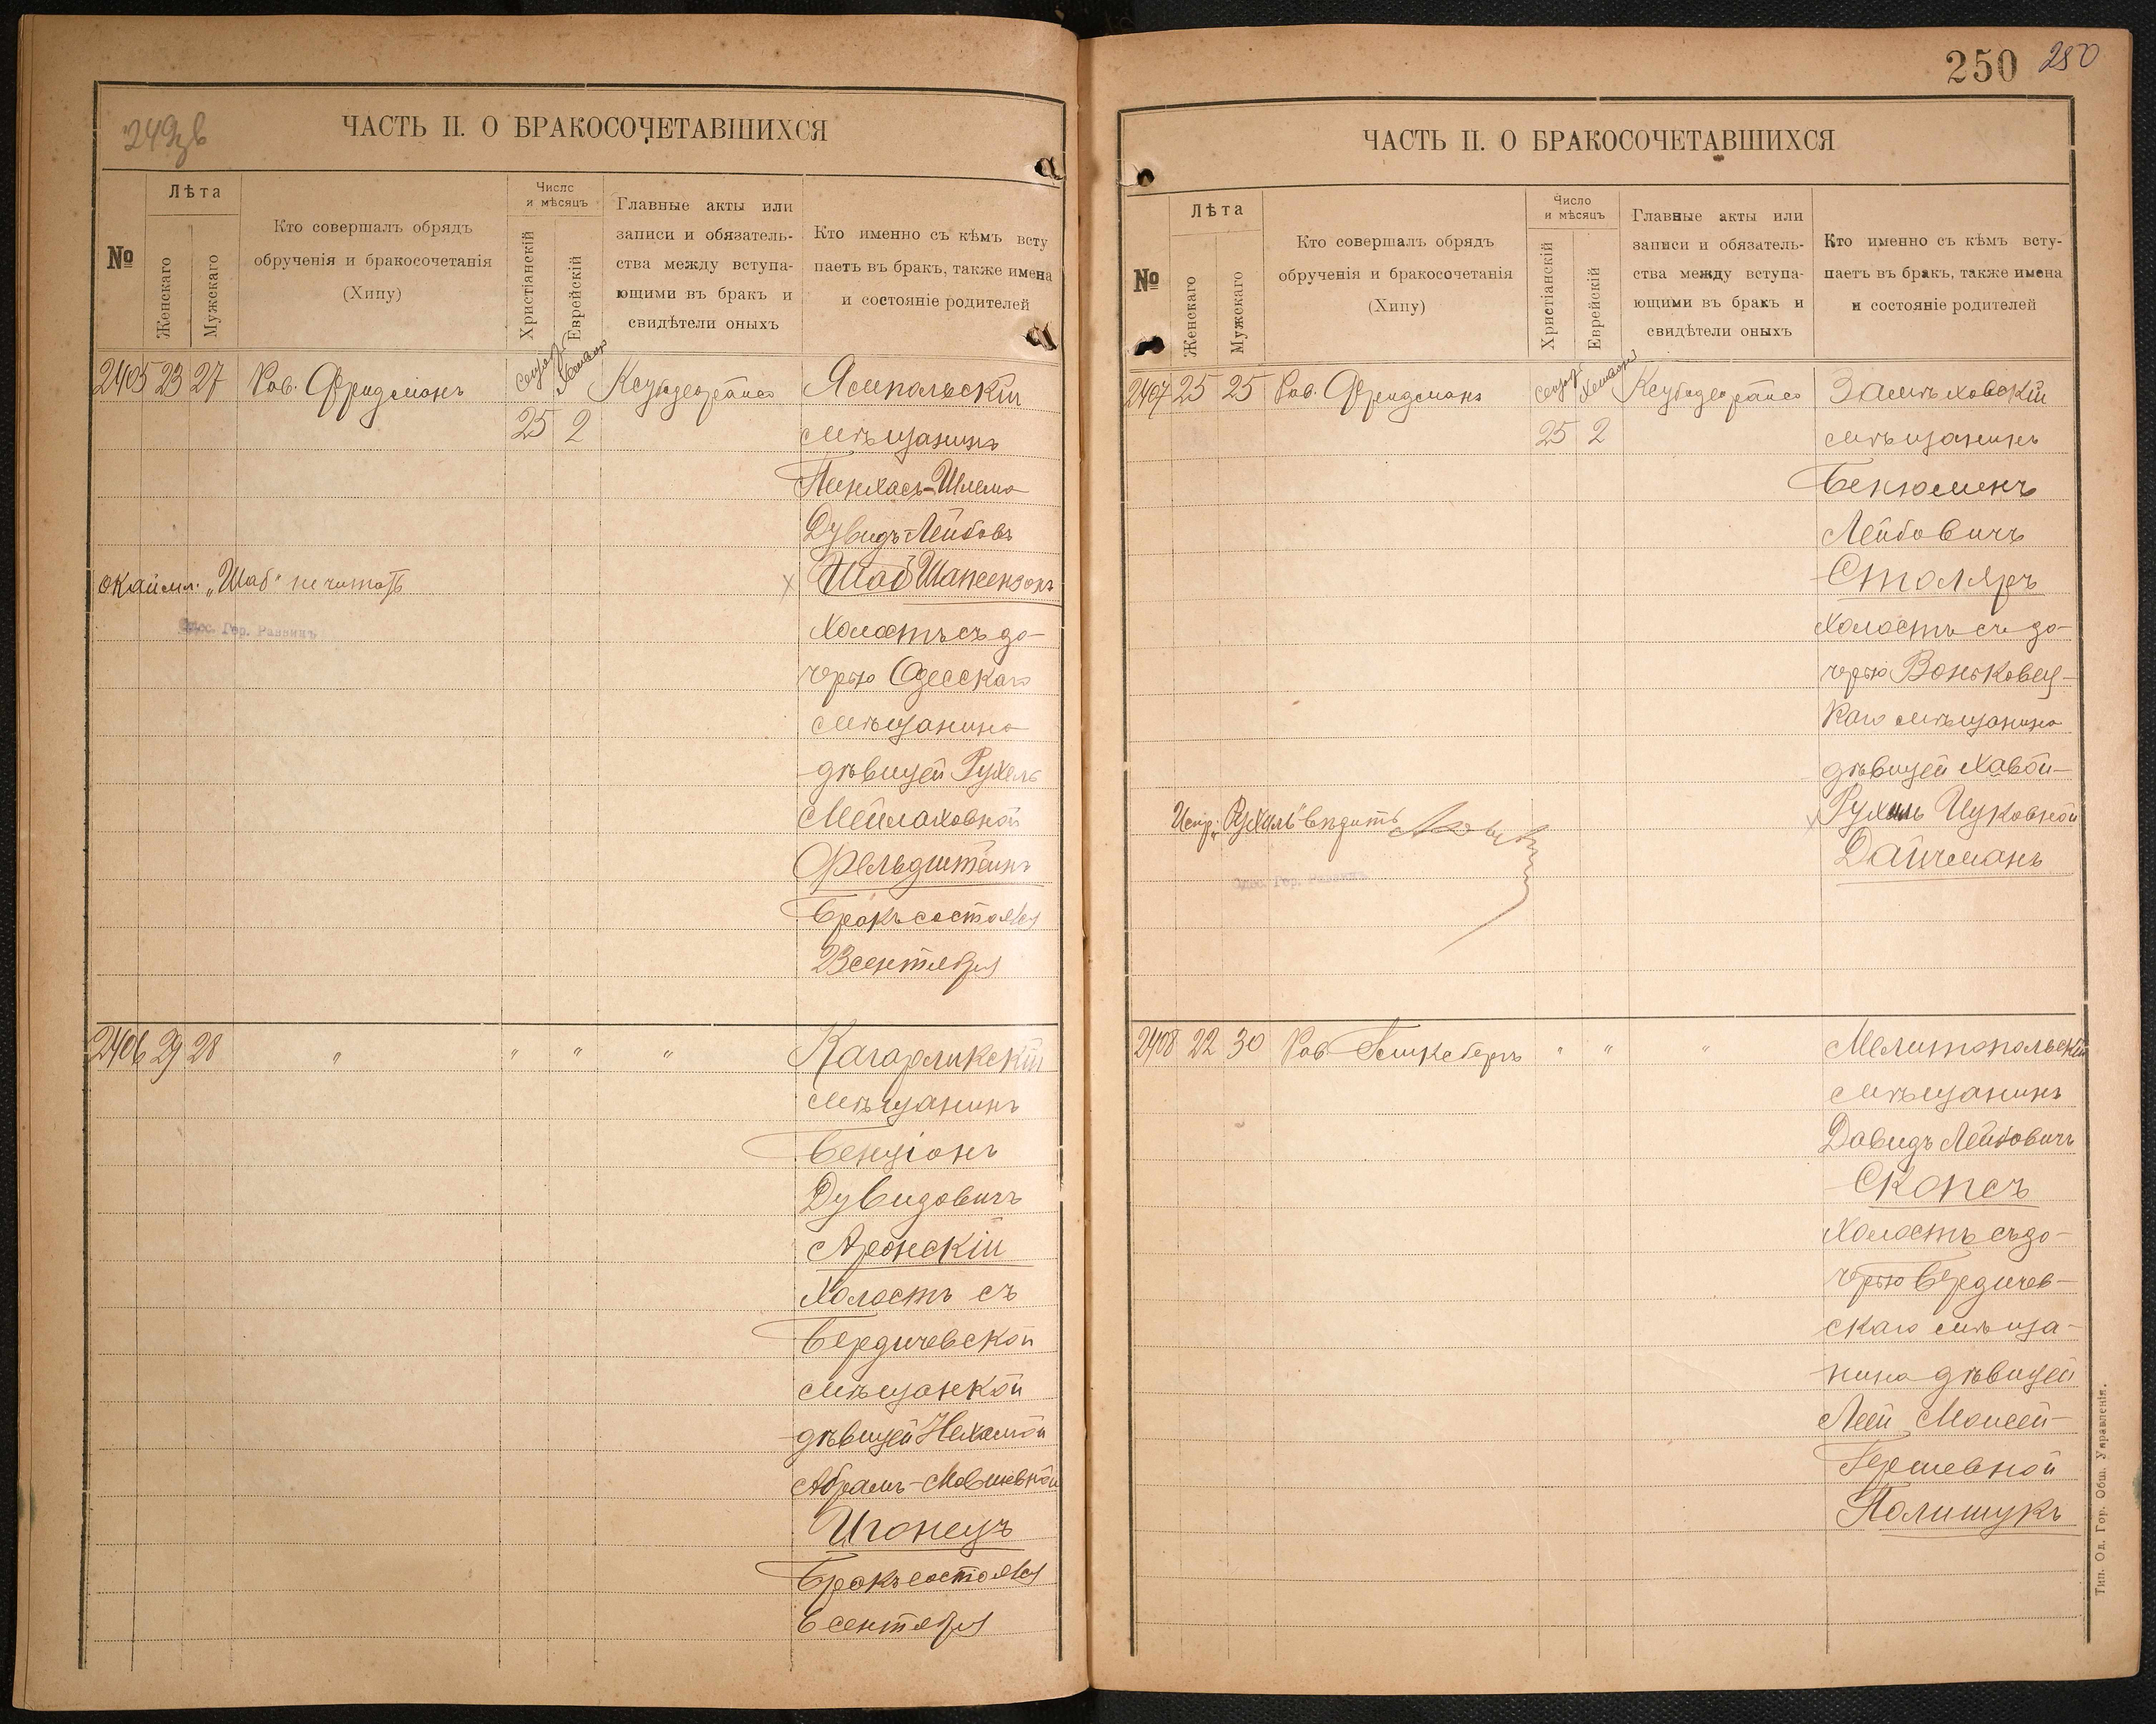 249зв
ЧАСТЬ II. О БРАКОСОЧЕТАВШИХСЯ
№
Лѣта
Женскаго
Мужскаго
Кто совершалъ обрядъ
обрученія и бракосочетанія
(Хипу)
Число
и мѣсяцъ
Христіанскій
Еврейскій
Главные акты или
записи и обязатель-
ства между вступа-
ющими въ бракъ и
свидѣтели оныхъ
Кто именно съ кѣмъ всту
паетъ въ бракъ, также имена
и состояніе родителей
2405 23 27 Рав. Фридманъ
25 2
Ямпольскій
мѣщанинъ
Пинхасъ-Шлема
Дувидъ-Лейбовъ
Шаб Шапензонъ
окаймл. „Шаб" не читать
Одес. Гор. Раввинъ
холостъ съ до-
черью Одесскаго
мѣщанина
дѣвицей Рухель
Мейлаховной
Фельдштейнъ
Бракъ состоялся
23 сентября
2406 29 28 " " " "
Кагарликскій
мѣщанинъ
Бенціонъ
Дувидовичъ
Аронскій
холостъ съ
Бердичевской
мѣщанкой
дѣвицей Нехамой
Абрамъ-Мовшевной
Игонецъ
Бракъ состоялся
6 сентября
250 250
ЧАСТЬ II. О БРАКОСОЧЕТАВШИХСЯ
№
Лѣта
Женскаго
Мужскаго
Кто совершалъ обрядъ
обрученія и бракосочетанія
(Хипу)
Число
и мѣсяцъ
Христіанскій
Еврейскій
Главные акты или
записи и обязатель-
ства между вступа-
ющими въ бракъ и
свидѣтели оныхъ
Кто именно съ кѣмъ всту-
паетъ въ бракъ, также имена
и состояніе родителей
2407 25 25 Рав. Фридманъ
25 2
Замѣховскій
мѣщанинъ
Бенюминъ
Лейбовичъ
Столяръ
холостъ съ до-
черью Воньковец-
каго мѣщанина
дѣвицей Хавой-
Рухль Ицковной
Дайчманъ
Испр. „Рухль"
Одес. Гор. Раввинъ
2408 22 30 Рав. " " "
Мелитопольскій
мѣщанинъ
Давидъ Лейбовичъ
Скопсъ
холостъ съ до-
черью Бердичев-
скаго мѣща-
нина дѣвицей
Леей Моисей-
Гершевной
Полишукъ
Тип. Од. Гор. Общ. Управленія.